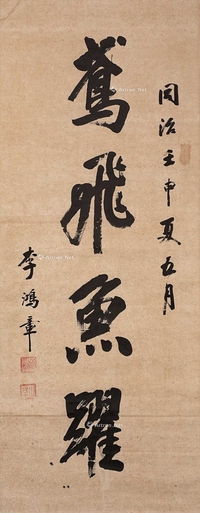 同治壬申夏五月
鸢飛魚躍
李鴻章